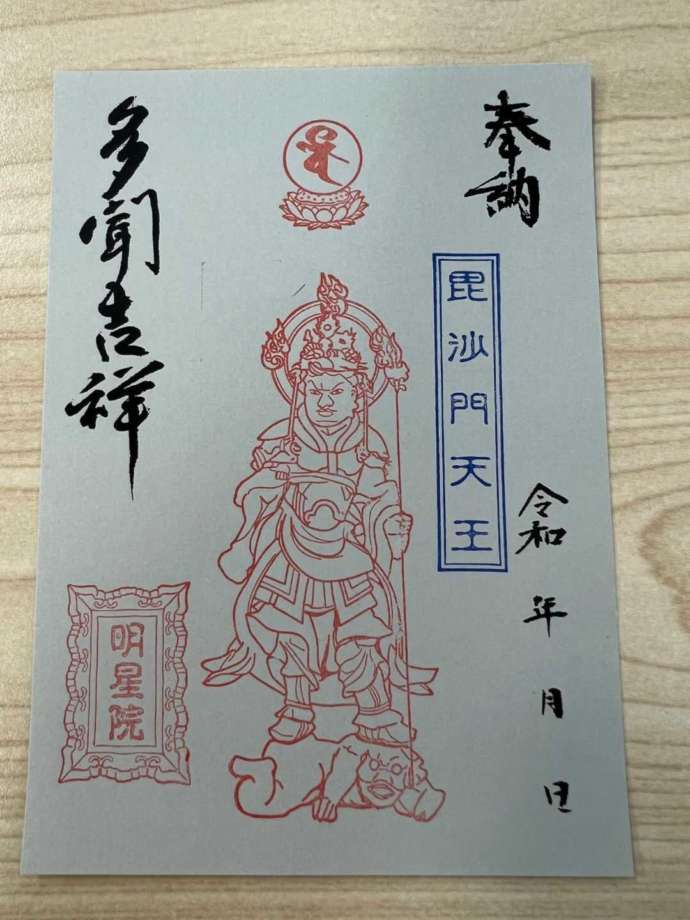 奉納
毘沙門天王
令和 年 月 日
多聞吉祥
明星院